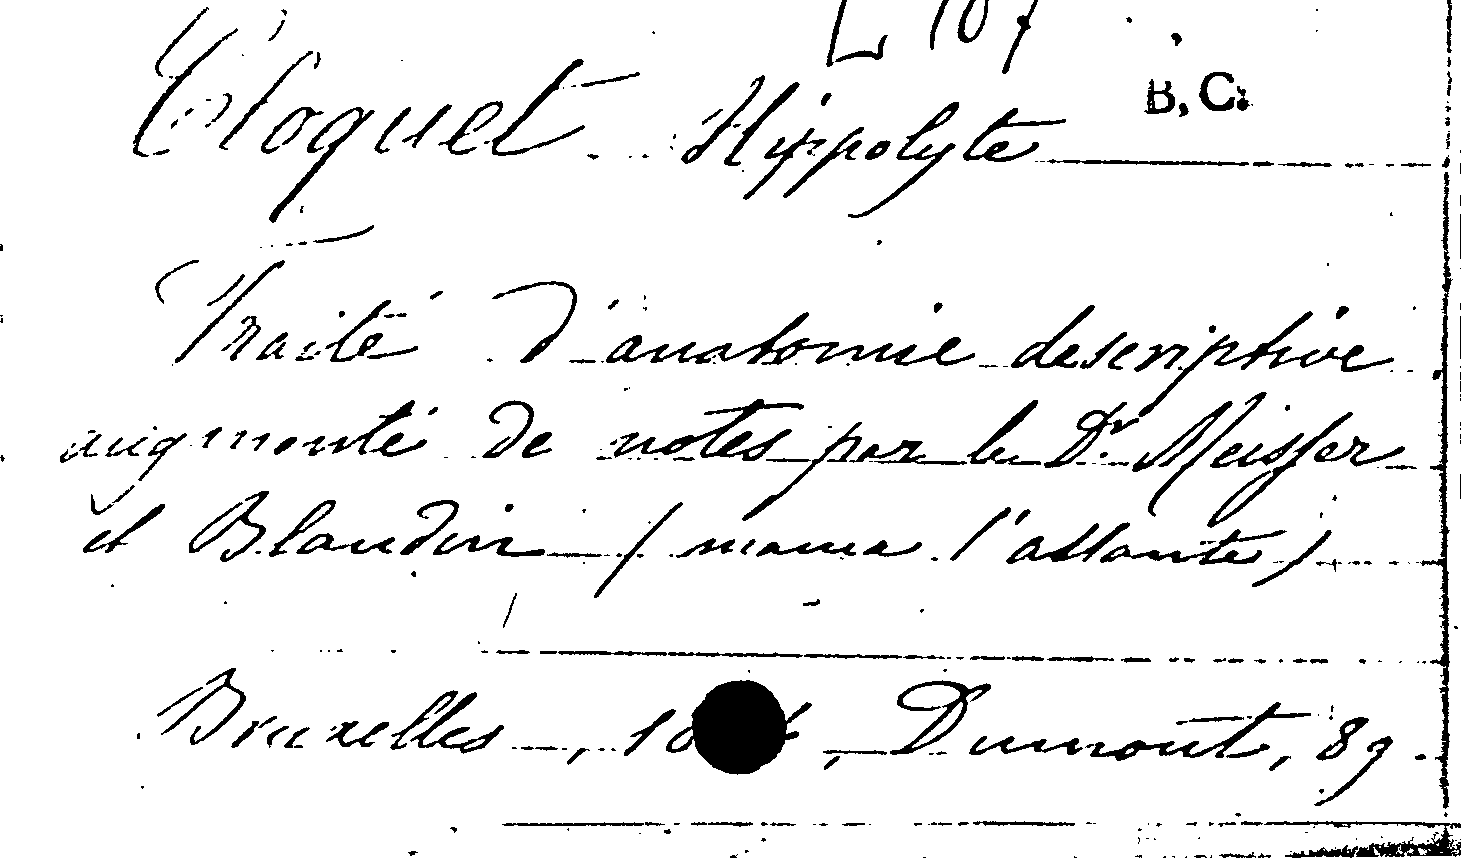 L 107
B.C.
Cloquet Hippolyte
Traité d'anatomie descriptive
augmenté de notes par le Dr. Meisser
et Blandin (manca l'atlante)
Bruxelles, 18 4, Dumont, 8º.